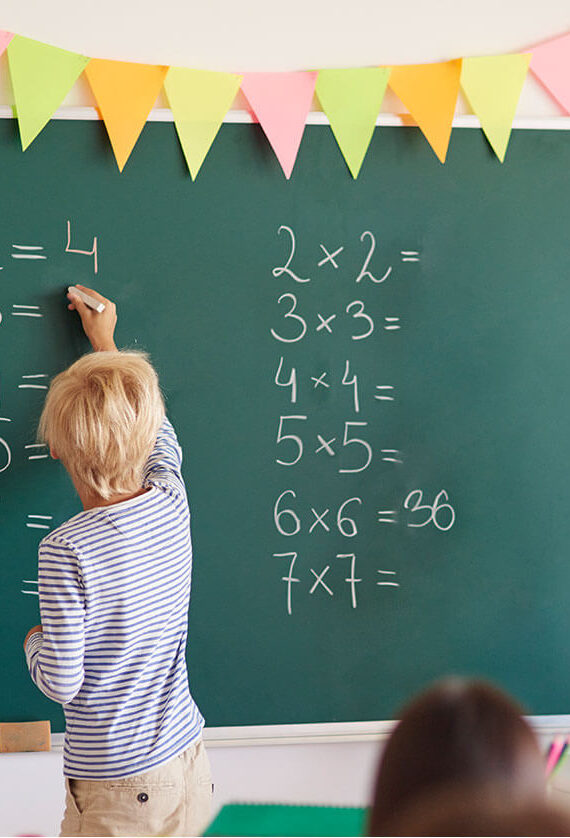 = 4
=
=
5 =
=
=
2 × 2 =
3 × 3 =
4 × 4 =
5 × 5 =
6 × 6 = 36
7 × 7 =